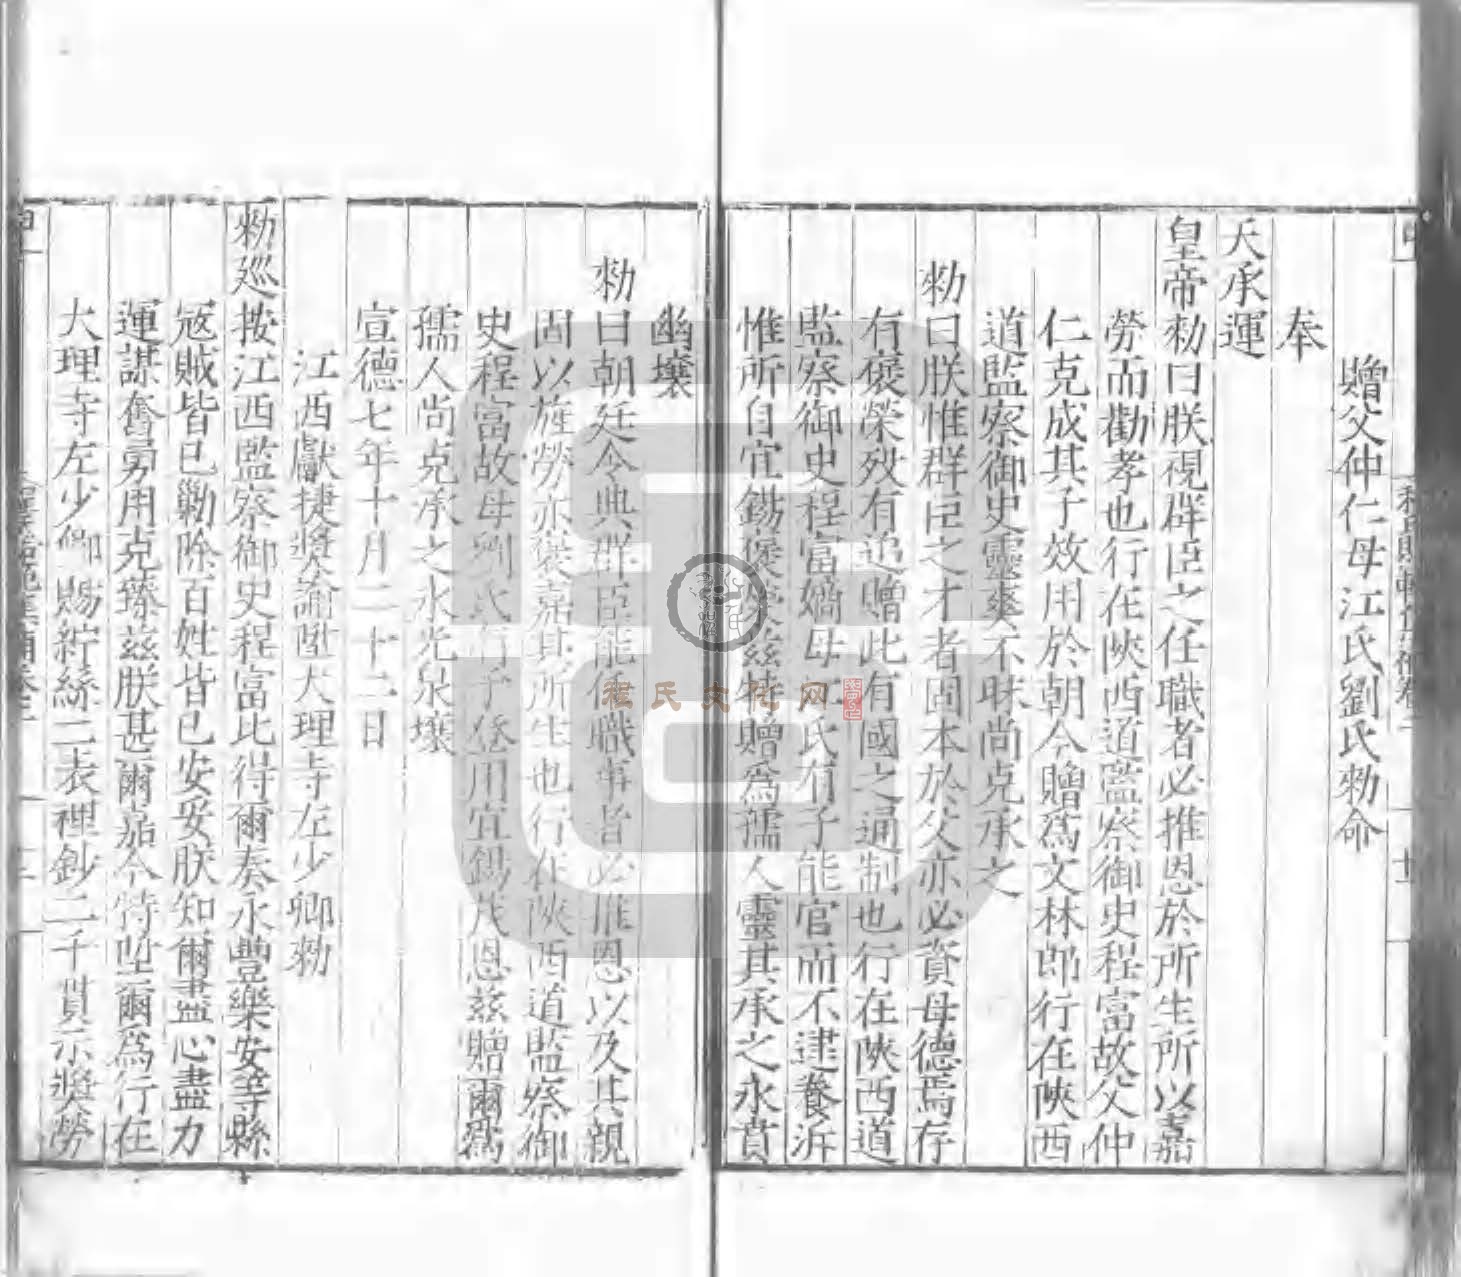 贈父仲仁母江氏劉氏勑命
奉
天承運
皇帝勑曰朕視群臣之任職者必推恩於所生所以嘉
勞而勸孝也行在陜西道監察御史程富故父仲
仁克成其子效用於朝今贈爲文林郎行在陜西
道監察御史靈爽不昧尚克承之
勑曰朕惟群臣之才者固本於父亦必資母德焉存
有褒榮歿有追贈此有國之通制也行在陜西道
監察御史程富嫡母江氏有子能官而不逮養泝
惟所自宜錫褒茲特贈爲孺人靈其承之永賁
幽壤
勑曰朝廷令典群臣能任職事者必推恩以及其親
固以旌勞亦褒嘉其所生也行在陜西道監察御
史程富故母劉氏有子登用宜錫茂恩茲贈爾爲
孺人尚克承之永光泉壤
宣德七年十月二十二日
江西獻捷奬諭陞大理寺左少卿勑
勑巡按江西監察御史程富比得爾奏永豐樂安等縣
寇賊皆已勦除百姓皆已安妥朕知爾盡心盡力
運謀奮勇用克臻茲朕甚爾嘉今特陞爾爲行在
大理寺左少卿賜紵絲二表裡鈔二千貫示奬勞
程氏文化网